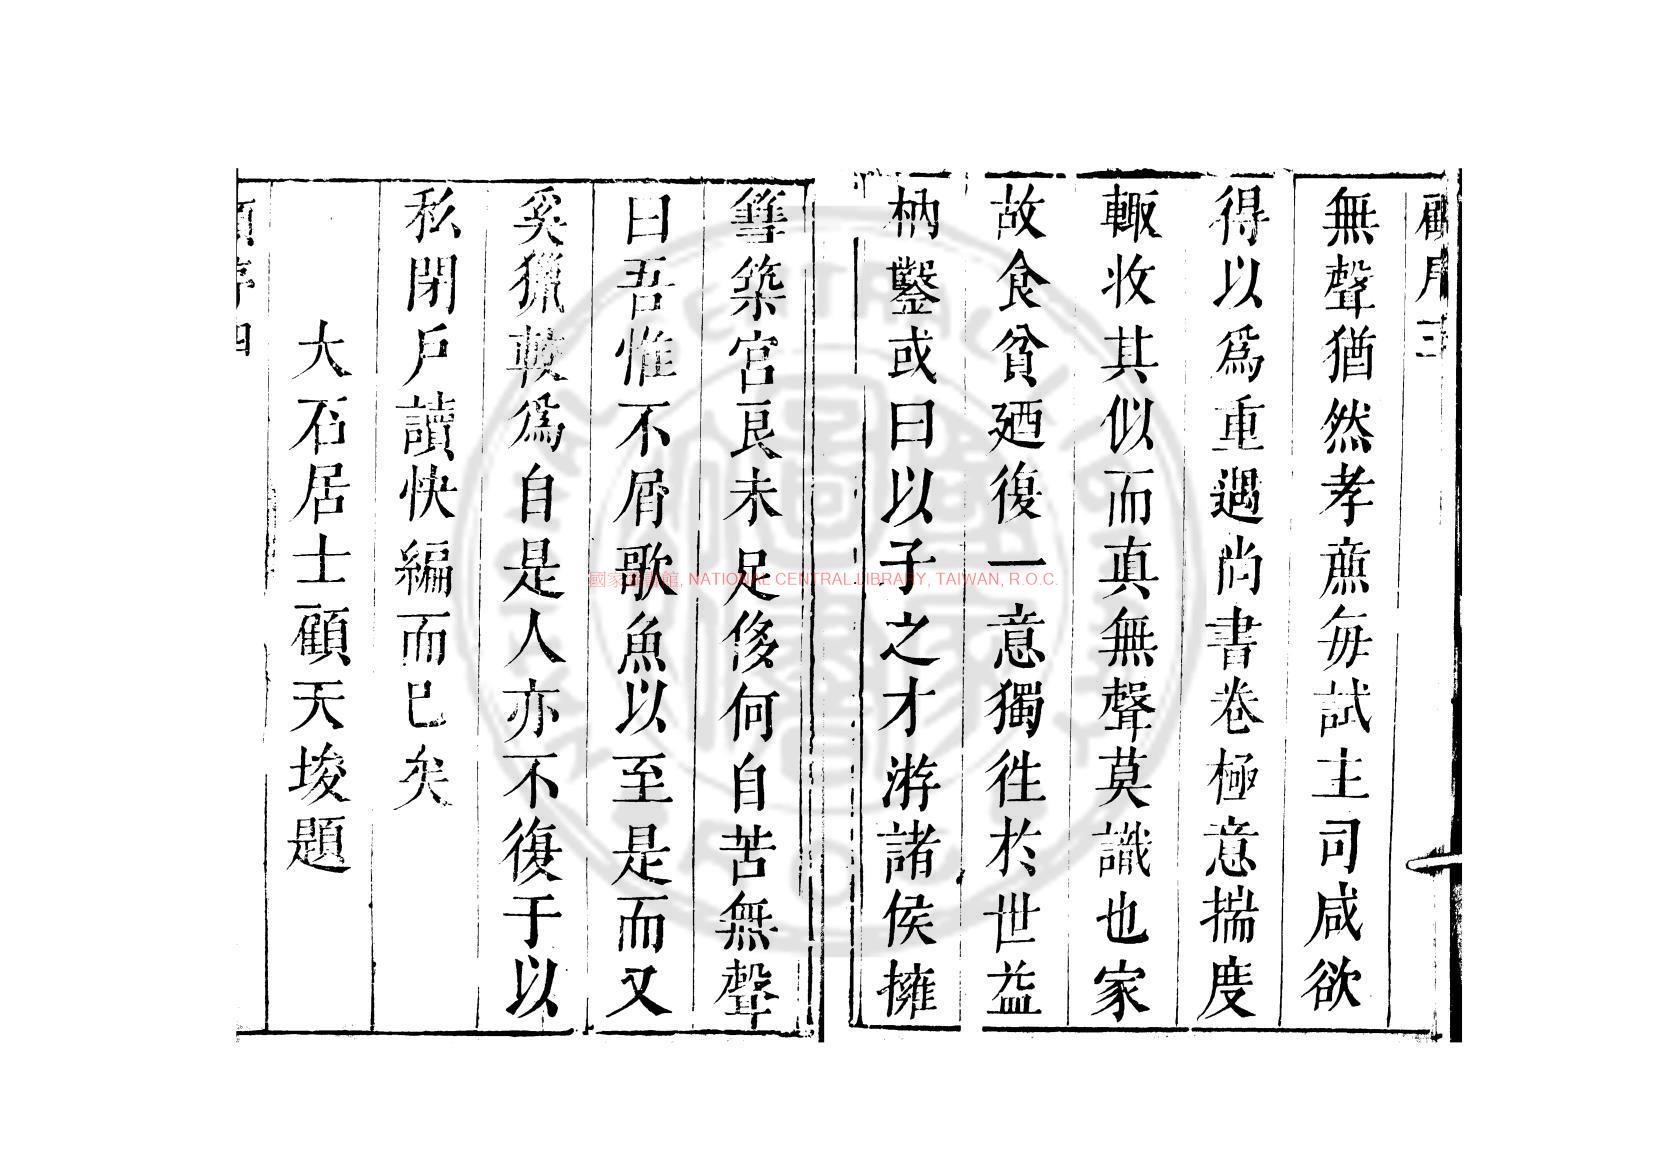 顧序 三
無聲猶然孝廉每試主司咸欲
得以爲重遇尚書卷極意揣度
輙收其似而真無聲莫識也家
故食貧廼復一意獨徃於世益
枘鑿或曰以子之才游諸侯擁
篲築宮良未足侈何自苦無聲
曰吾惟不屑歌魚以至是而又
奚獵較爲自是人亦不復于以
私閉戶讀快編而已矣
大石居士顧天埈題
顧序 四
國家圖書館, NATIONAL CENTRAL LIBRARY, TAIWAN, R.O.C.